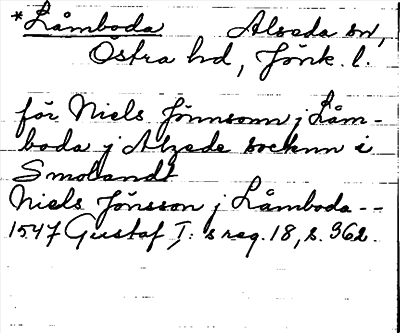 *Låmboda Alseda sn,
Östra hd, Jönk. l.
för Niels Jönnsom j Låm-
boda j Alzede socknn i
Smolandt
Niels Jönsson j Låmboda --
1547 Gustaf I: s reg. 18, s. 362.